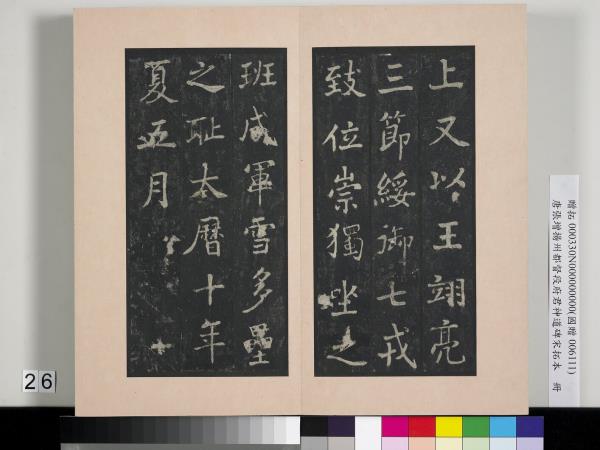 上又以王翊亮
三節綏御七戎
致位崇獨坐之
班成軍雪多壘
之耻太曆十年
夏五月
26
贈拓 000330N000000000(國贈 006111)
唐張增揚州都督段府君神道碑宋拓本 冊